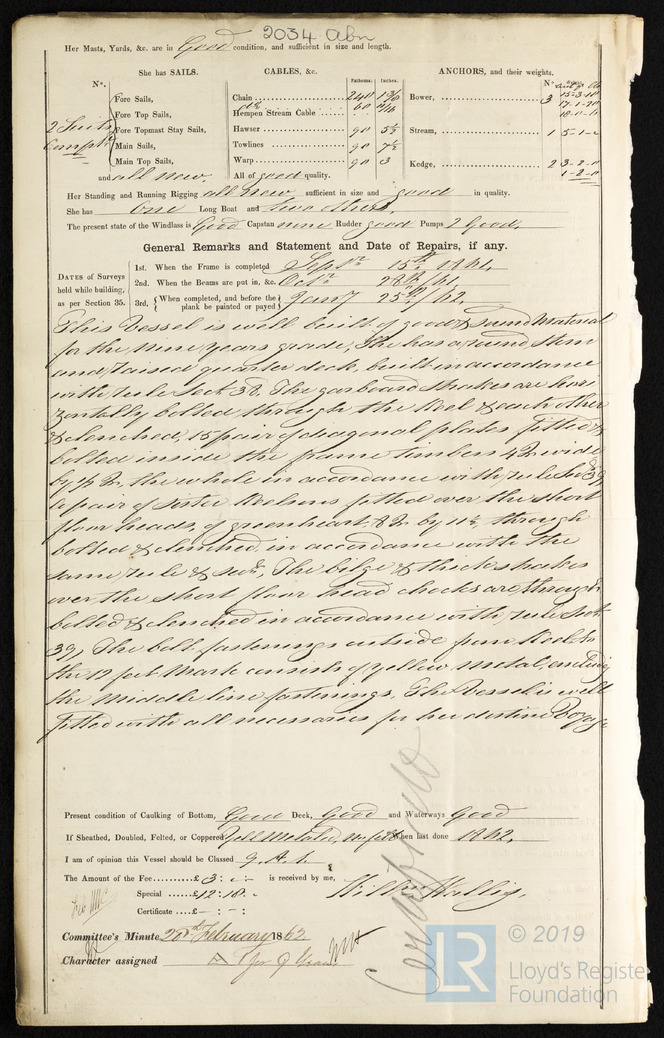 2034 Abn
Her Masts, Yards, &c. are in Good condition, and sufficient in size and length.
She has SAILS.
CABLES, &c.
Fathoms.
Inches.
ANCHORS, and their weights.
Nº.
Nº
Fore Sails,
Chain
240
Bower,
3
15-3-10
Fore Top Sails,
Hempen Stream Cable
60
2 Suits
Fore Topmast Stay Sails,
Hawser
90
5½
Stream,
1
Compte
Main Sails,
Towlines
90
7½
Main Top Sails,
Warp
90
3
Kedge,
2
3-2-0
1-2-0
and all new.
All of good quality.
Her Standing and Running Rigging all new sufficient in size and good in quality.
She has One Long Boat and two others.
The present state of the Windlass is Good Capstan mine Rudder good Pumps 2 Good.
General Remarks and Statement and Date of Repairs, if any.
DATES of Surveys held while building, as per Section 35.
1st. When the Frame is completed Septr 15th 1861.
2nd. When the Beams are put in, &c. Octr 28th /61.
3rd. When completed, and before the plank be painted or payed Jany 25th /62.
This Vessel is well built of good & sound Material
for the nine years grade, She has a round Stern
and raised quarter deck, built in accordance
with rule Sect. 38. The garboard strakes are hori
zontally bolted through the Keel & each other
& clenched, 15 pair of diagonal plates fitted &
bolted inside the frame timbers 4 In wide
by ½ In, the whole in accordance with rule Sec 39
a pair of Sister Keelsons fitted over the short
floor heads, of greenheart, 8 In by 11½, through
bolted & clenched in accordance with the
same rule & secn, The bilge & thick strakes
over the short floor head chocks are through
bolted & clenched in accordance with rule Sect.
39, The bolt fastenings outside from Keel to
the 12 feet Mark consists of yellow metal, including
the middle line fastenings. The Vessel is well
fitted with all necessaries for her destine Voyage
Present condition of Caulking of Bottom, Good Deck, Good and Waterways Good
If Sheathed, Doubled, Felted, or Coppered Yell Metaled, on felt When last done 1862.
I am of opinion this Vessel should be Classed 9. A. 1.
The Amount of the Fee.....£ 3 : - : - is received by me,
Special ......£ 12 : 18 : -
Certificate ...£ - : - : -
Committee's Minute 20th February 1862
Character assigned A 1 for 9 Years
LR
© 2019
Lloyd's Registe
Foundation